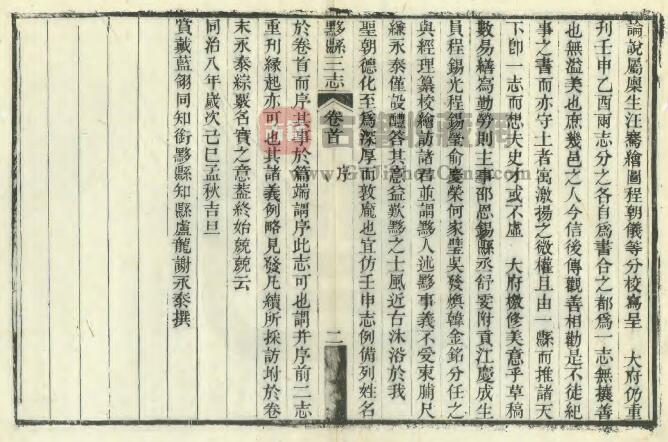 論說屬廩生汪騫繪圖程朝儀等分校寫呈　大府仍重
刊壬申乙酉兩志分之各自爲書合之都爲一志無攘善
也無溢美也庶幾邑之人今信後傳觀善相勸是不徒紀
事之書而亦守土者寓激揚之微權且由一縣而推諸天
下卽一志而想夫史才或不虛　大府檄修美意乎草稿
數易繕寫勤勞則主事邵恩錫縣丞舒嬰附貢江慶成生
員程錫光程錫榮俞慶榮何家璧吳發燠韓金銘分任之
與經理纂校繪訪諸君並謂黟人述黟事義不受束脯尺
縑永泰僅設醴答其意益歎黟之士風近古沐浴於我
聖朝德化至爲深厚而敦龐也宜仿壬申志例備列姓名
黟縣三志
卷首
序
二
於卷首而序其事於篇端謂序此志可也謂并序前二志
重刊緣起亦可也其諸義例略見發凡續所採訪坿於卷
末永泰綜覈名實之意蓋終始兢兢云
同治八年歲次己巳孟秋吉旦
賞戴藍翎同知銜黟縣知縣盧龍謝永泰撰
www.GuJiShouCang.Com